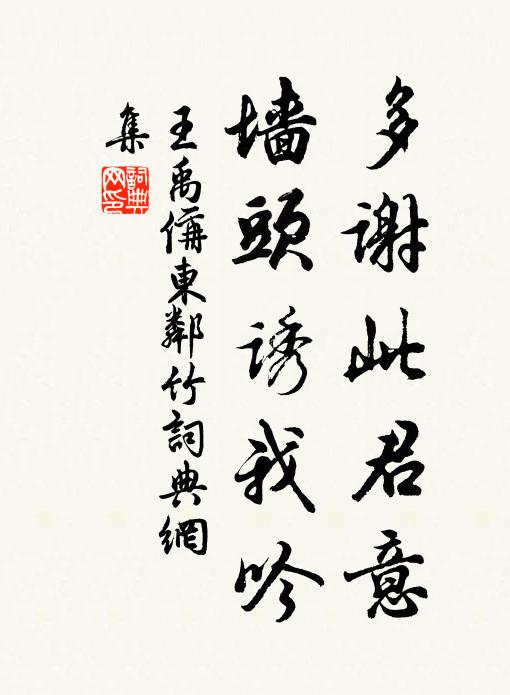 多謝此君意
墻頭誘我吟
王禹偁東鄰竹詞典網
集
詞典網印